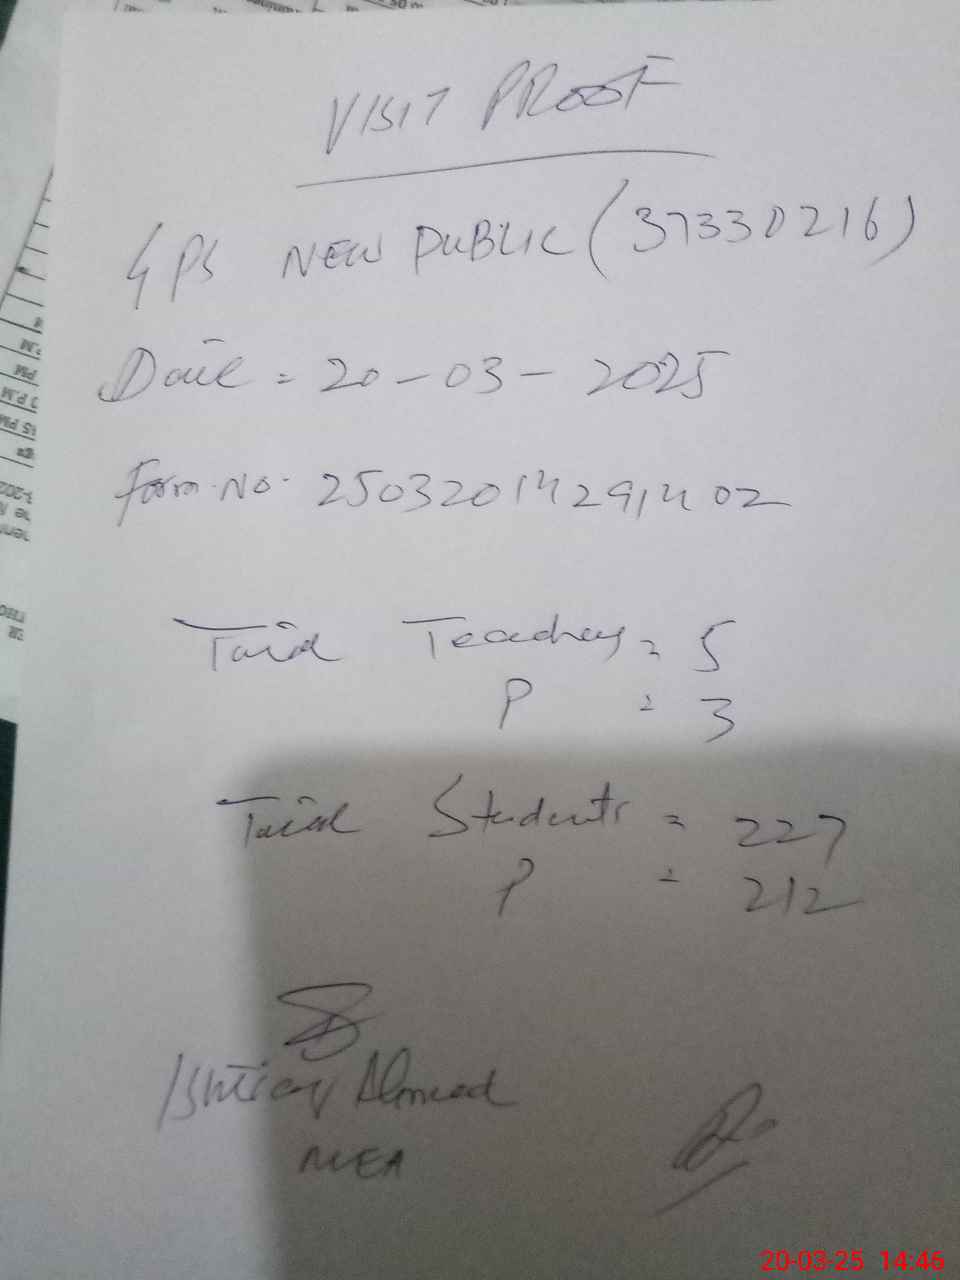 VISIT PROOF
GPS NEW PUBLIC (37330216)
Date = 20-03-2025
Form.No. 25032014291402
Total Teachers = 5
P = 3
Total Students = 227
P = 212
Ishtiaq Ahmed
MEA
20-03-25 14:46